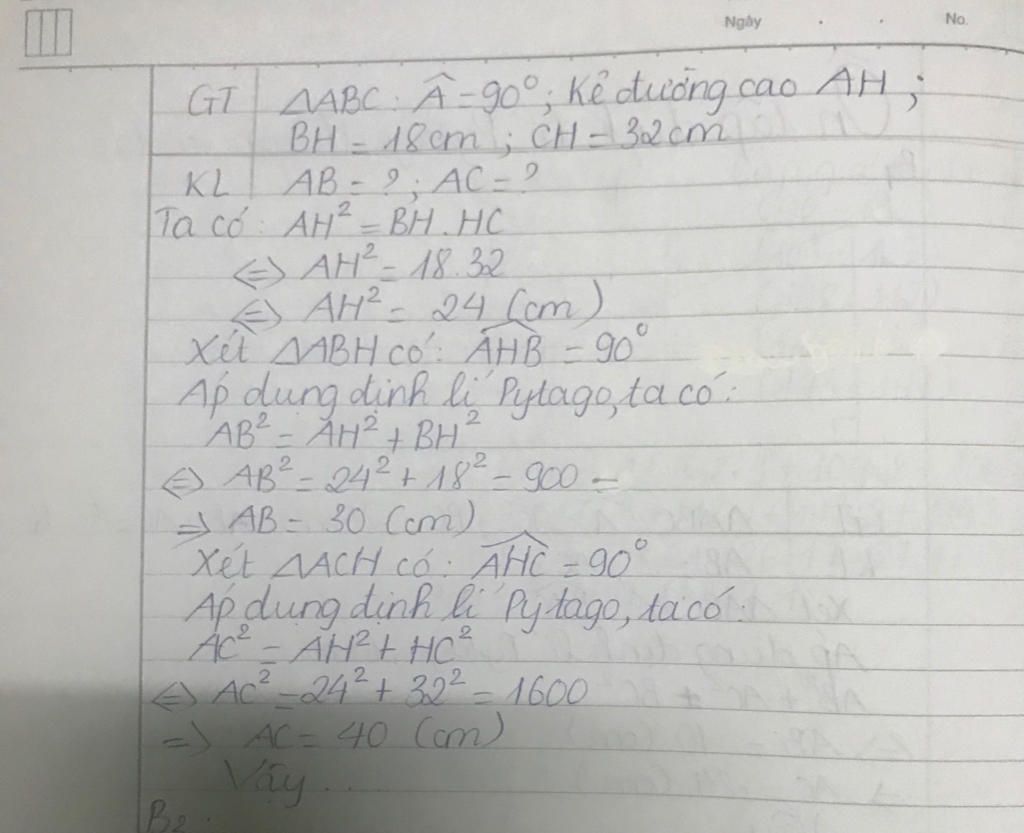 Ngày . . No.
GT ΔABC: Â = 90°; Kẻ đường cao AH;
BH = 18cm; CH = 32cm
KL AB = ?; AC = ?
Ta có: AH² = BH.HC
⇔ AH² = 18.32
⇔ AH² = 24 (cm)
Xét ΔABH có: \widehat{AHB} = 90°
Áp dụng định lí Pytago, ta có:
AB² = AH² + BH²
⇔ AB² = 24² + 18² = 900
⇒ AB = 30 (cm)
Xét ΔACH có: \widehat{AHC} = 90°
Áp dụng định lí Pytago, ta có:
AC² = AH² + HC²
⇔ AC² = 24² + 32² = 1600
⇒ AC = 40 (cm)
Vậy ...
B2: